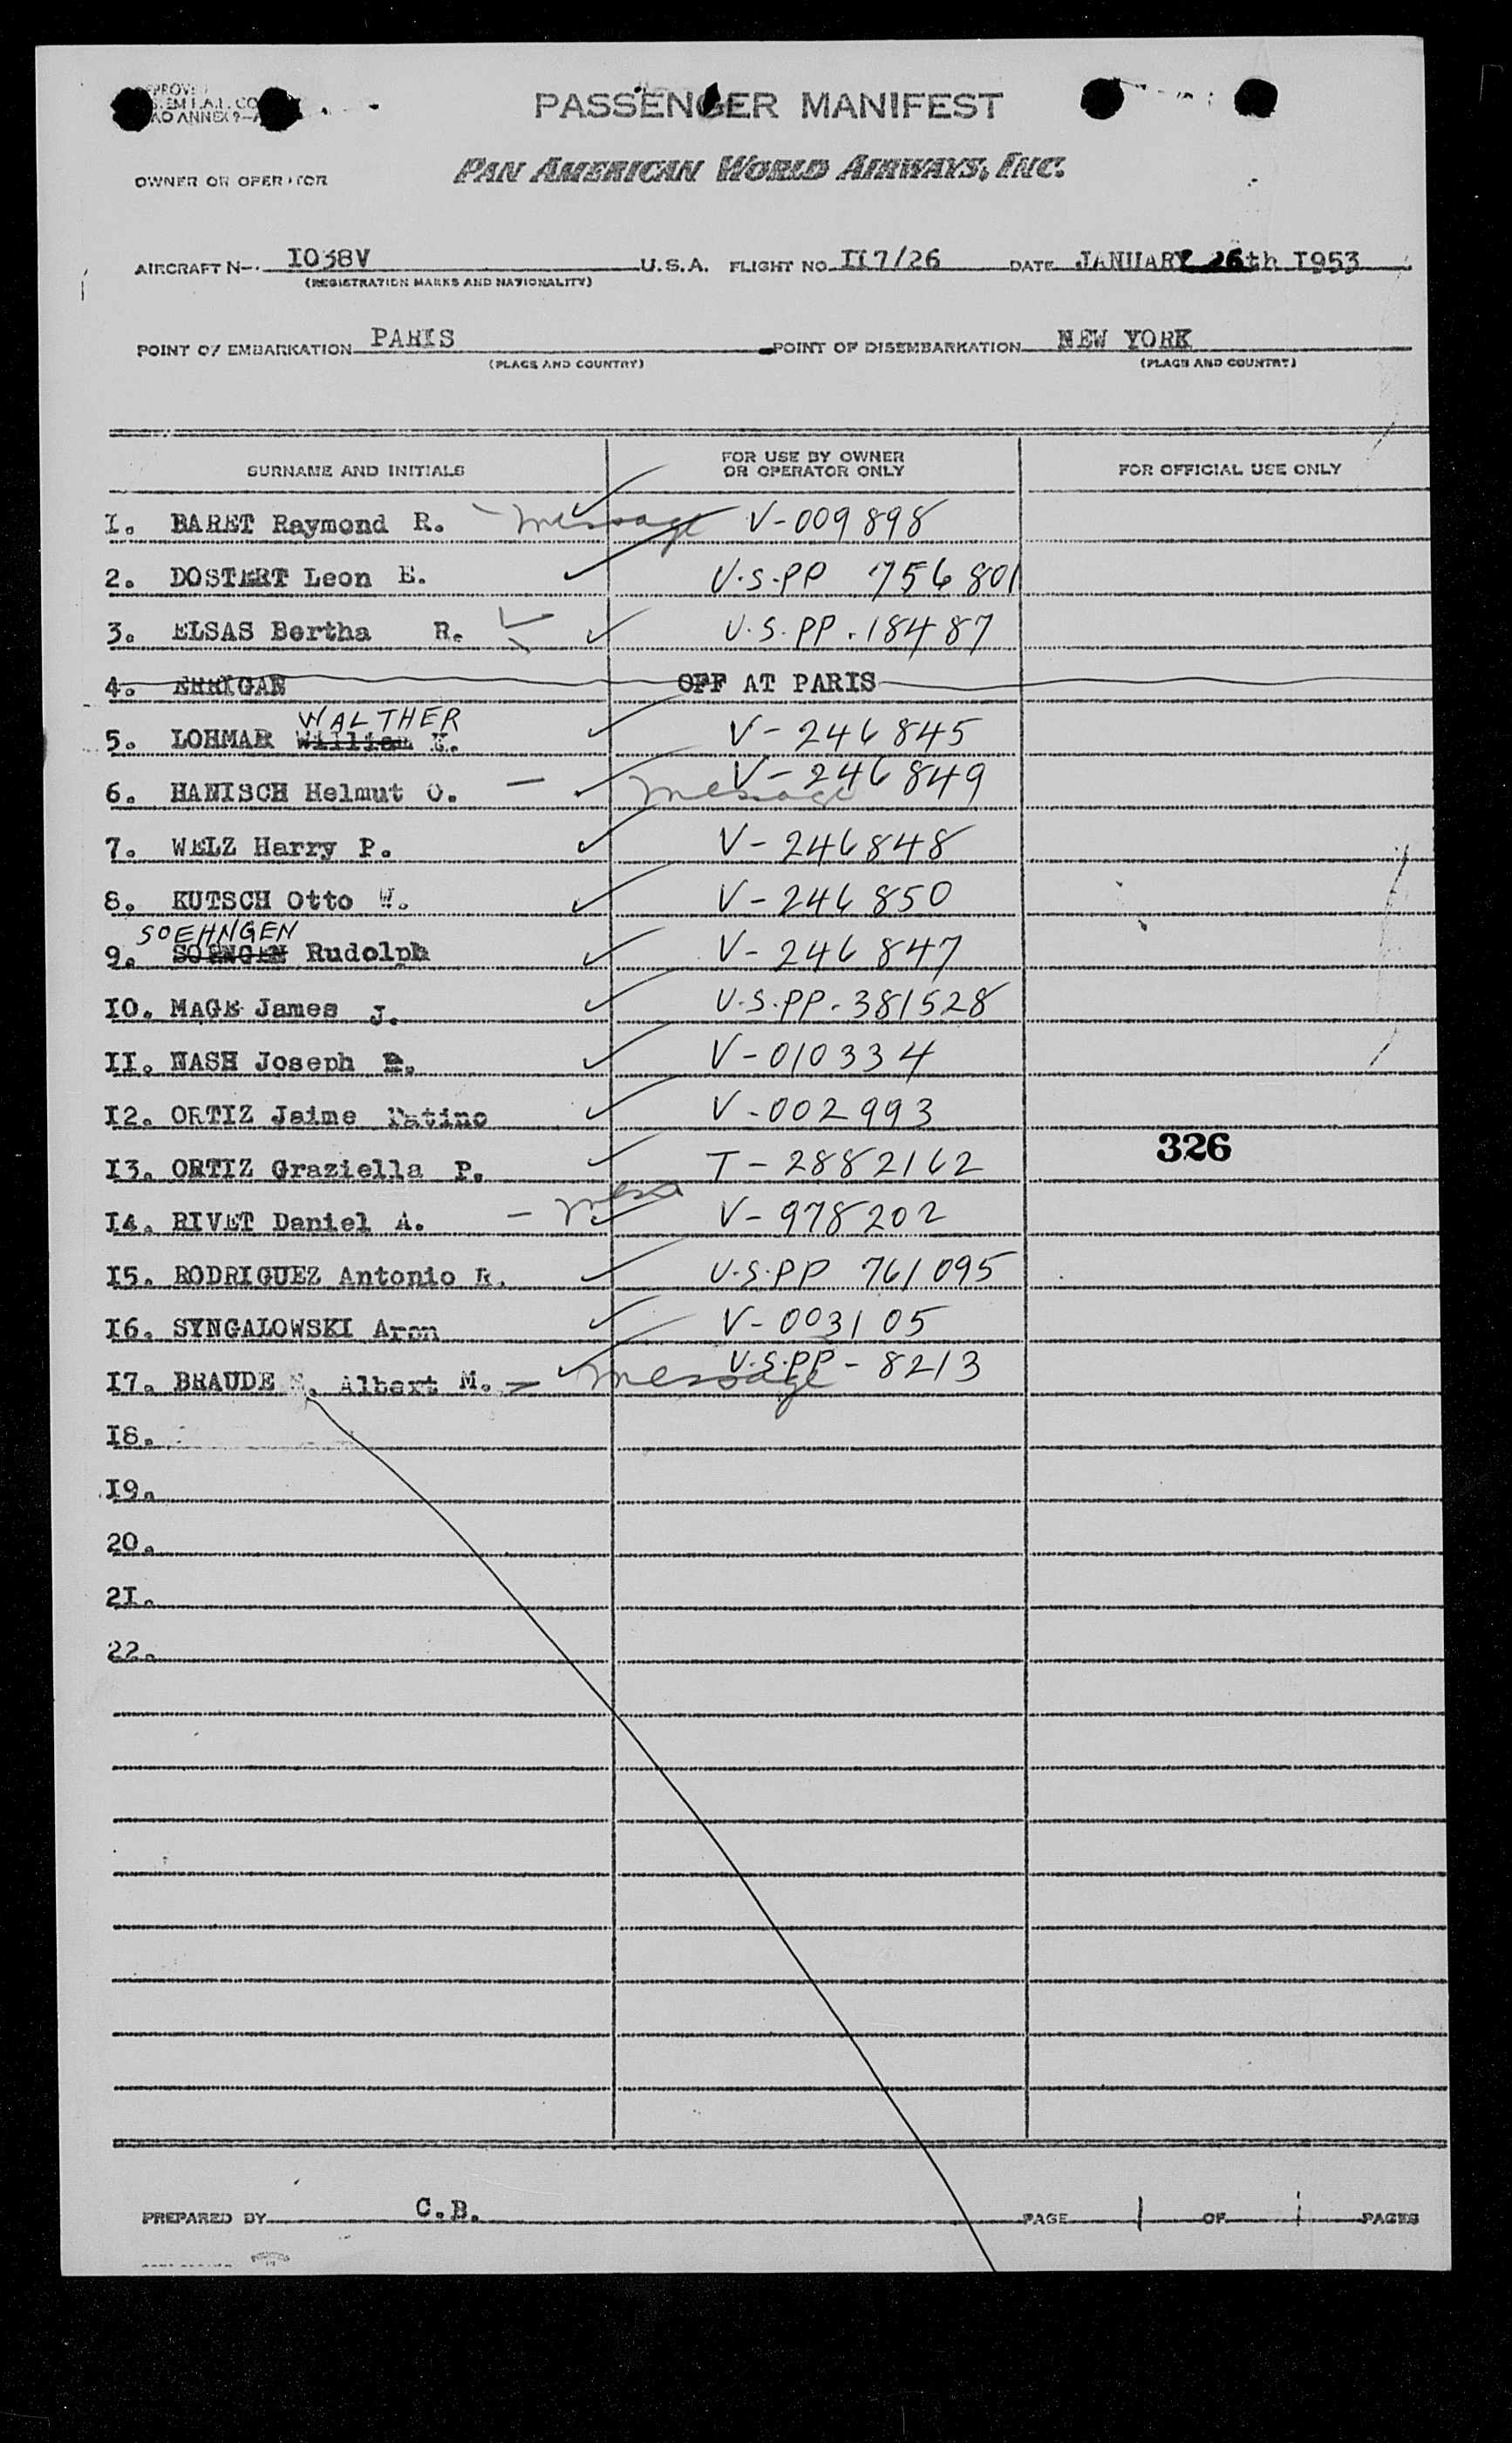 PASSENGER MANIFEST
AO ANNEX 9-
OWNER OR OPERATOR
PAN AMERICAN WORLD AIRWAYS, INC.
AIRCRAFT N-. I038V U.S.A. FLIGHT NO II7/26 DATE JANUARY 26th I953
(REGISTRATION MARKS AND NATIONALITY)
POINT OF EMBARKATION PARIS POINT OF DISEMBARKATION NEW YORK
(PLACE AND COUNTRY) (PLACE AND COUNTRY)
SURNAME AND INITIALS FOR USE BY OWNER OR OPERATOR ONLY FOR OFFICIAL USE ONLY
I. BARET Raymond R. message V-009898
2. DOSTERT Leon E. U.S.PP 756801
3. ELSAS Bertha R. U.S.PP.18487
4. ERRIGAN OFF AT PARIS
WALTHER
5. LOHMAR William V-246845
6. HANISCH Helmut O. message V-246849
7. WELZ Harry P. V-246848
8. KUTSCH Otto W. V-246850
SOEHNGEN
9. SOENGEN Rudolph V-246847
IO. MAGE James J. U.S.PP.381528
II. NASH Joseph V-010334
I2. ORTIZ Jaime Patino V-002993
326
I3. ORTIZ Graziella P. T-2882162
I4. RIVET Daniel A. V-978202
I5. RODRIGUEZ Antonio R. U.S.PP 761095
I6. SYNGALOWSKI Aron V-003105
I7. BRAUDE Albert M. message U.S.PP-8213
I8.
I9.
20.
2I.
22.
PREPARED BY C.B. PAGE 1 OF 1 PAGES